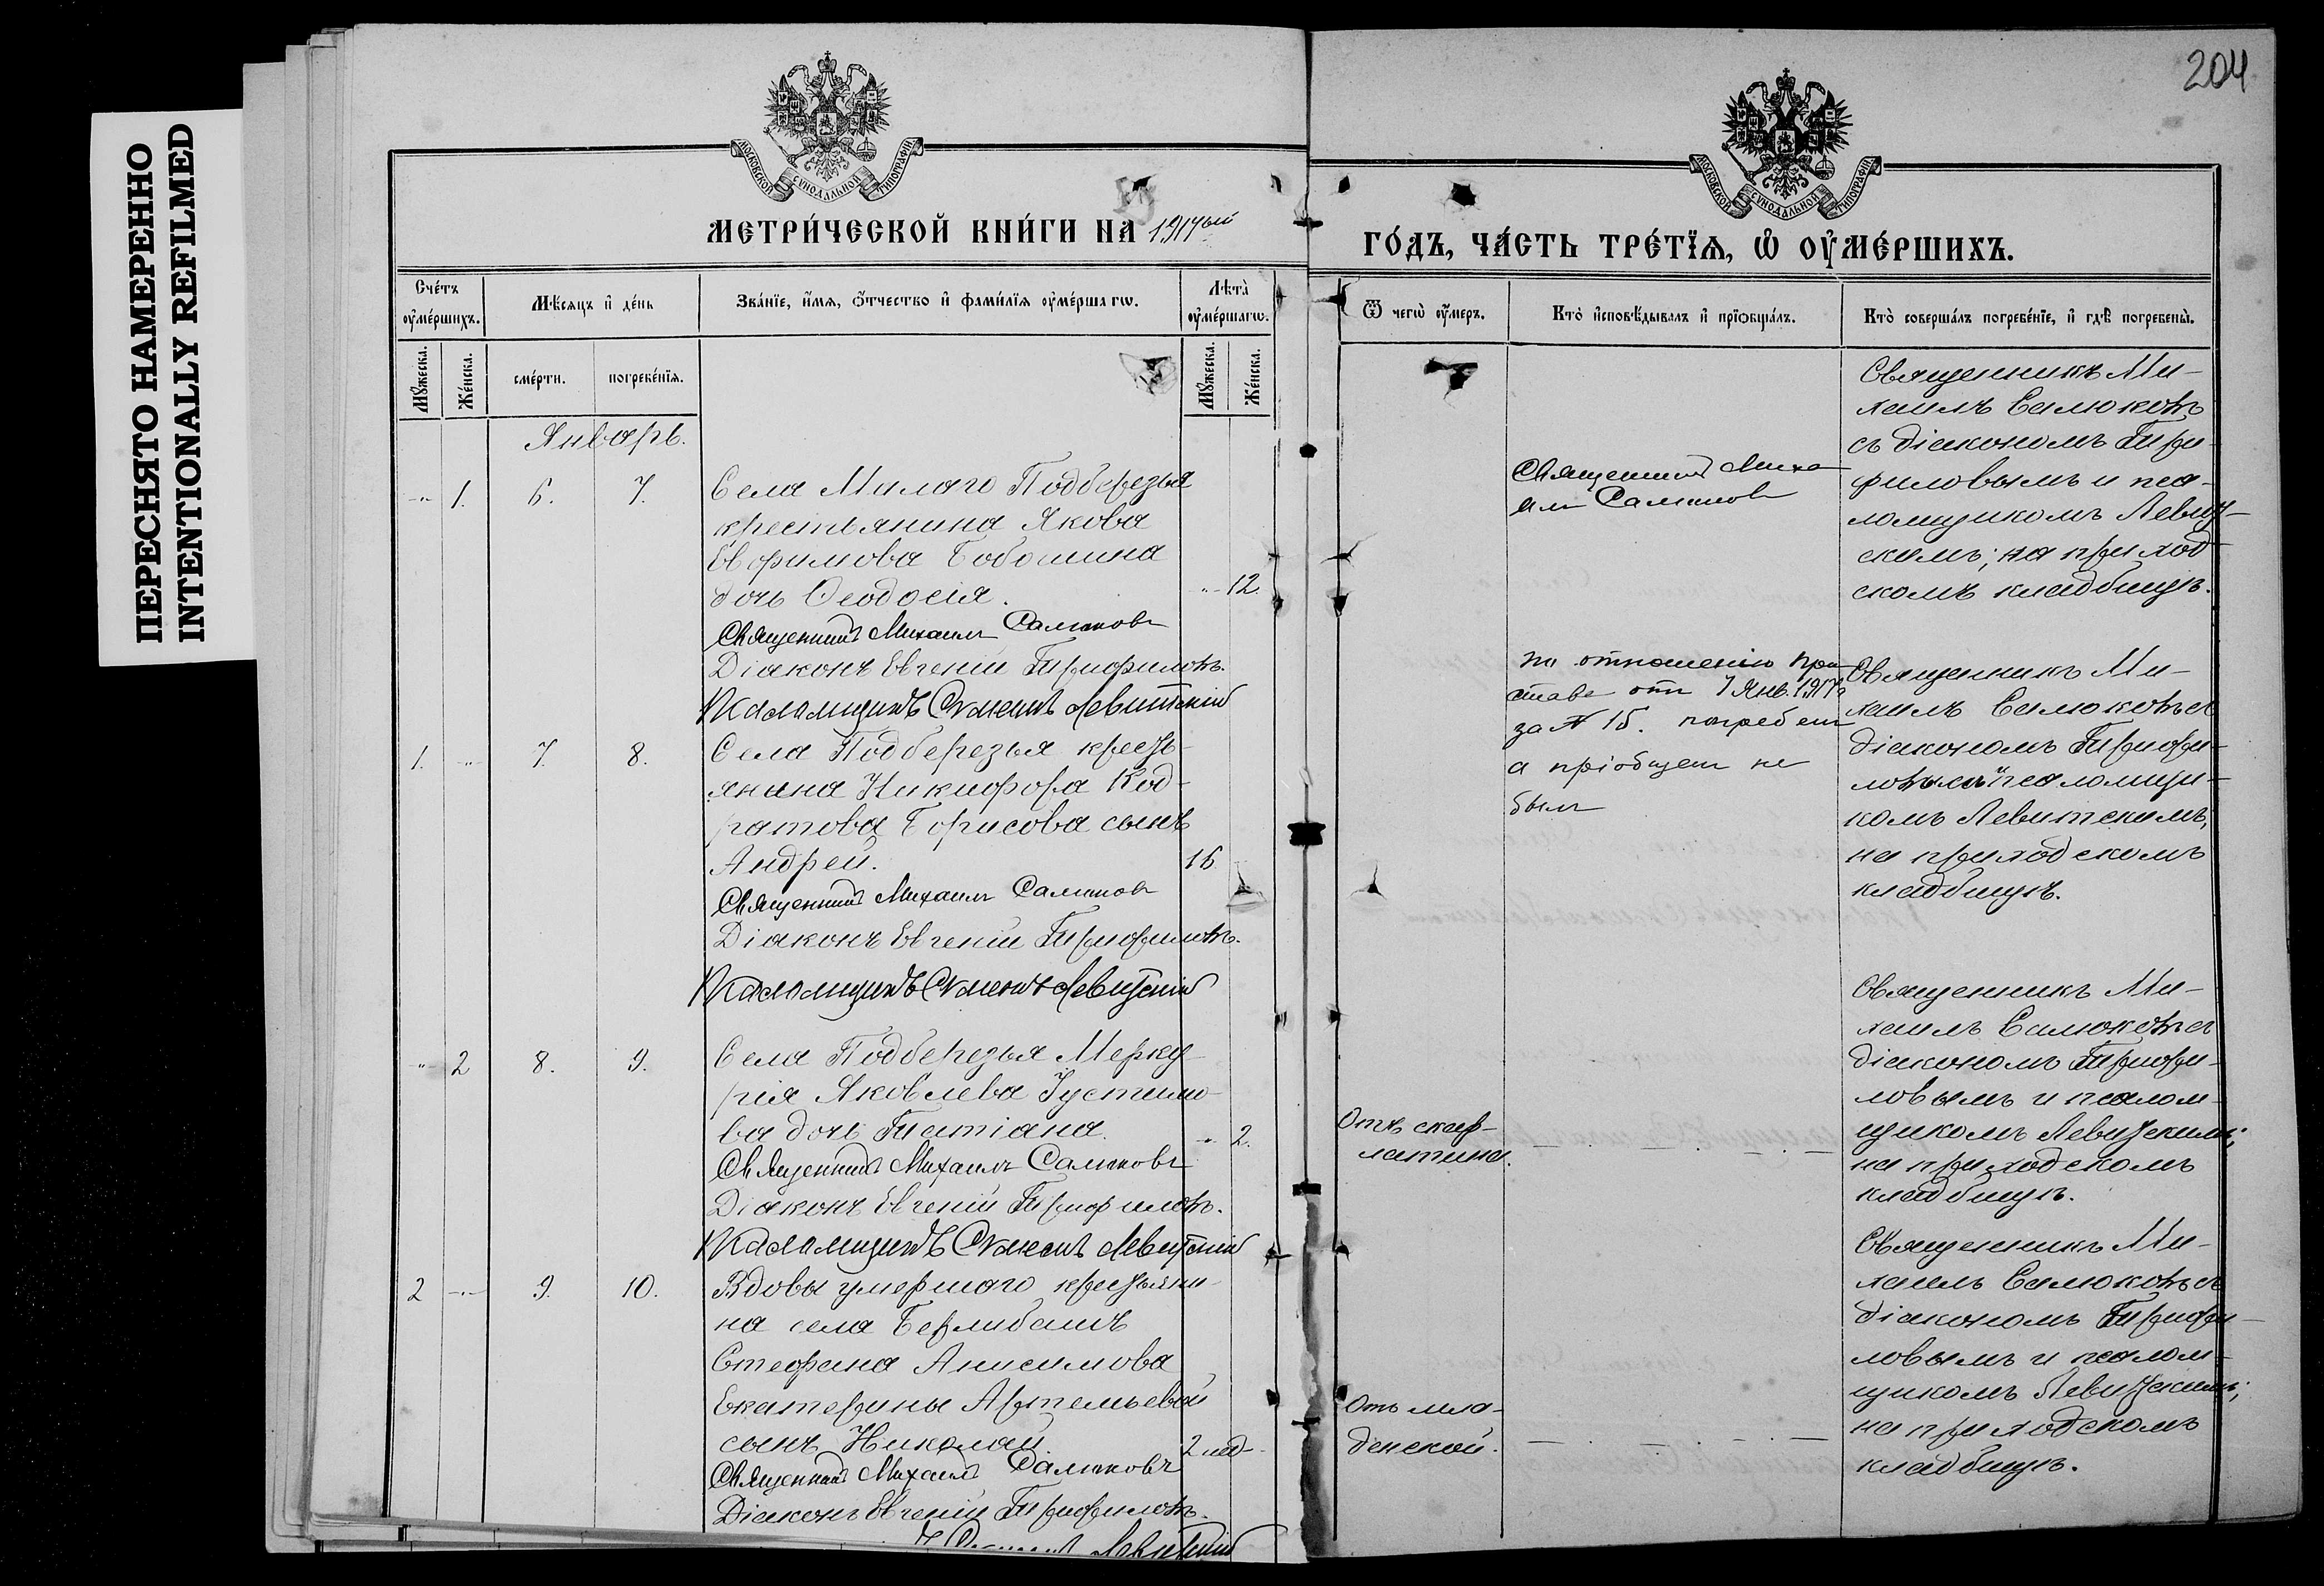 ПЕРЕСНЯТО НАМЕРЕННО
INTENTIONALLY REFILMED
204
МОСКОВСКОЙ СѴНОДАЛЬНОЙ ТИПОГРАФІИ
МОСКОВСКОЙ СѴНОДАЛЬНОЙ ТИПОГРАФІИ
МЕТРИ́ЧЕСКОЙ КНИ́ГИ НА 1917ый
ГО́ДЪ, ЧА́СТЬ ТРЕ́ТІѦ, Ѡ҆ ОУ҆МЕ́РШИХЪ.
Сче́тъ оу҆ме́ршихъ.
Мѣ́сѧцъ и҆ де́нь
Зва́нїе, и҆́мѧ, ѻ҆́тчество и҆ фами́лїѧ оу҆ме́ршагѡ.
Лѣта̀ оу҆ме́ршагѡ.
Ѿ чегѡ̀ оу҆́меръ.
Кто̀ и҆сповѣ́дывалъ и҆ прїѻбща́лъ.
Кто̀ соверша́лъ погребе́нїе, и҆ гдѣ̀ погребены̀.
Мꙋ́жеска.
Же́нска.
сме́рти.
погребе́нїѧ.
Мꙋ́жеска.
Же́нска.
Январь.
1. 6. 7. Села Малаго Подберезья
крестьянина Якова
Евфимова Бобошина
дочь Ѳеодосія. 12.
Священникъ Михаилъ Салюковъ
Діаконъ Евгеній Трифиловъ.
Псаломщикъ Симеонъ Левитскій
Священникъ Миха
илъ Салюковъ
Священникъ Ми-
хаилъ Салюковъ
съ діакономъ Три-
филовымъ и пса-
ломщикомъ Левит-
скимъ; на приход-
скомъ кладбищѣ.
1. 7. 8. Села Подберезья кресть-
янина Никифора Код-
ратова Борисова сынъ
Андрей. 16
Священникъ Михаилъ Салюковъ
Діаконъ Евгеній Трифиловъ.
Псаломщикъ Симеонъ Левитскій
По отношенію при
става отъ 7 Янв. 1917 г
за № 15. погребенъ
а пріобщен не
былъ
Священникъ Ми-
хаилъ Салюковъ съ
діакономъ Трифи-
ловымъ и псаломщи-
комъ Левитскимъ;
на приходскомъ
кладбищѣ.
2 8. 9. Села Подберезья Мерку-
рія Яковлева Густимо-
ва дочь Татіана. 2.
Священникъ Михаилъ Салюковъ
Діаконъ Евгеній Трифиловъ.
Псаломщикъ Симеонъ Левитскій
Отъ скар-
латина.
Священникъ Ми-
хаилъ Салюковъ съ
діакономъ Трифи-
ловымъ и псалом-
щикомъ Левитскимъ;
на приходскомъ
кладбищѣ.
2 9. 10. Вдовы умершаго крестьяни-
на села Берлибашъ
Стефана Анисимова
Екатерины Артемьевой
сынъ Николай. 2 нед.
Священникъ Михаилъ Салюковъ
Діаконъ Евгеній Трифиловъ.
Левитскій
Отъ мла-
денской.
Священникъ Ми-
хаилъ Салюковъ съ
діакономъ Трифи-
ловымъ и псалом-
щикомъ Левитскимъ;
на приходскомъ
кладбищѣ.